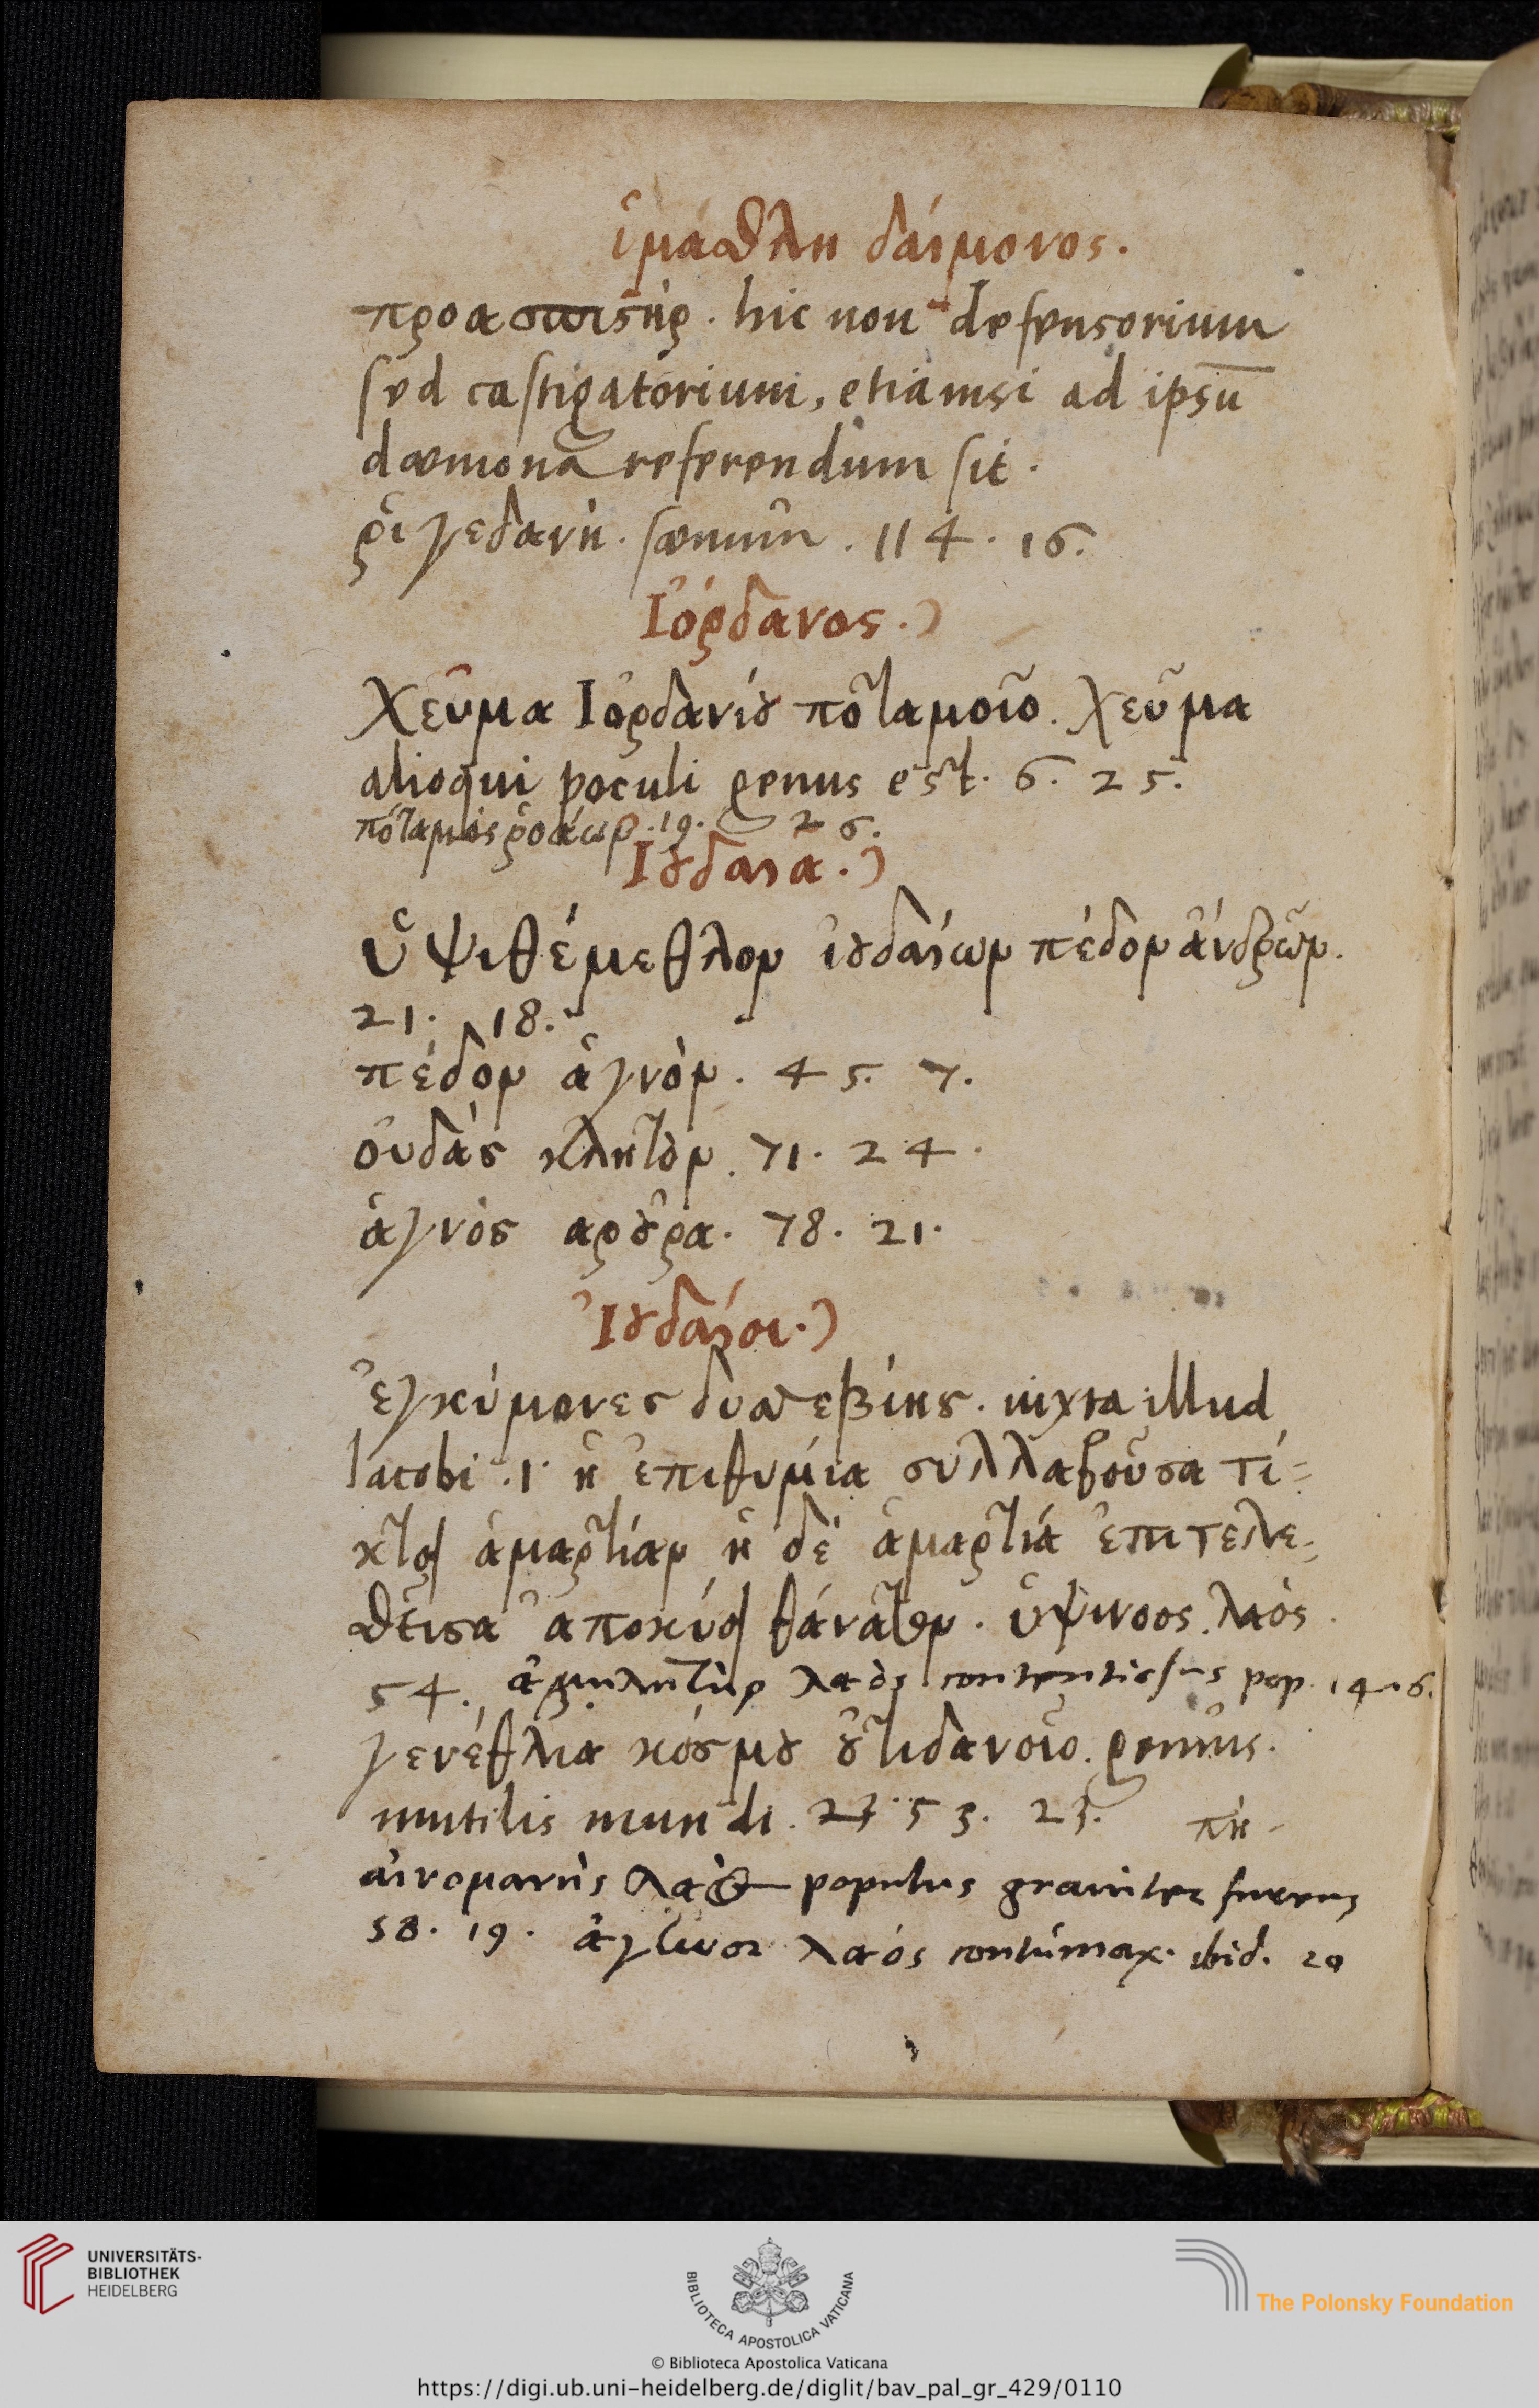 ἱμάσθλη δαίμονος.
προασπιστὴρ. hic non defensorium
sed castigatorium, etiamsi ad ipsū
dæmona referendum sit.
ῥιγεδανὴ. sæuum. 114. 16.
Ἰόρδανος.
χεῦμα Ἰορδανίου ποταμοῖο. χεῦμα
alioqui poculi genus est. 6. 25.
ποταμὸς ῥοάων. 19. 26.
Ἰουδαία.
ὑψιθέμεθλον ἰουδαίων πέδον ἀνδρῶν.
21. 18.
πέδον ἁγνὸν. 45. 7.
οὐδὰς κλητὸν. 71. 24.
ἁγνὸς αρούρα. 78. 21.
Ἰουδαίοι.
ἐγκύμονες δυσσεβίης. iuxta illud
Iacobi .1. ἡ ἐπιθυμία συλλαβοῦσα τί-
κτει ἁμαρτίαν ἡ δὲ ἁμαρτιά ἐπιτελε-
σθεῖσα ἀποκύει θάνατον. ὑψινοος λαὸς.
54. λαὸς contentiosus pop. 14. 6.
γενέθλια κόσμου οὐτιδανοῖο. genus
inutilis mundi. 53. 23. πη-
αινομανὴς λαὸς populus grauiter furens
58. 19. λαός contumax. ibid. 20
UNIVERSITÄTS-
BIBLIOTHEK
HEIDELBERG
BIBLIOTECA APOSTOLICA VATICANA
The Polonsky Foundation
© Biblioteca Apostolica Vaticana
https://digi.ub.uni-heidelberg.de/diglit/bav_pal_gr_429/0110